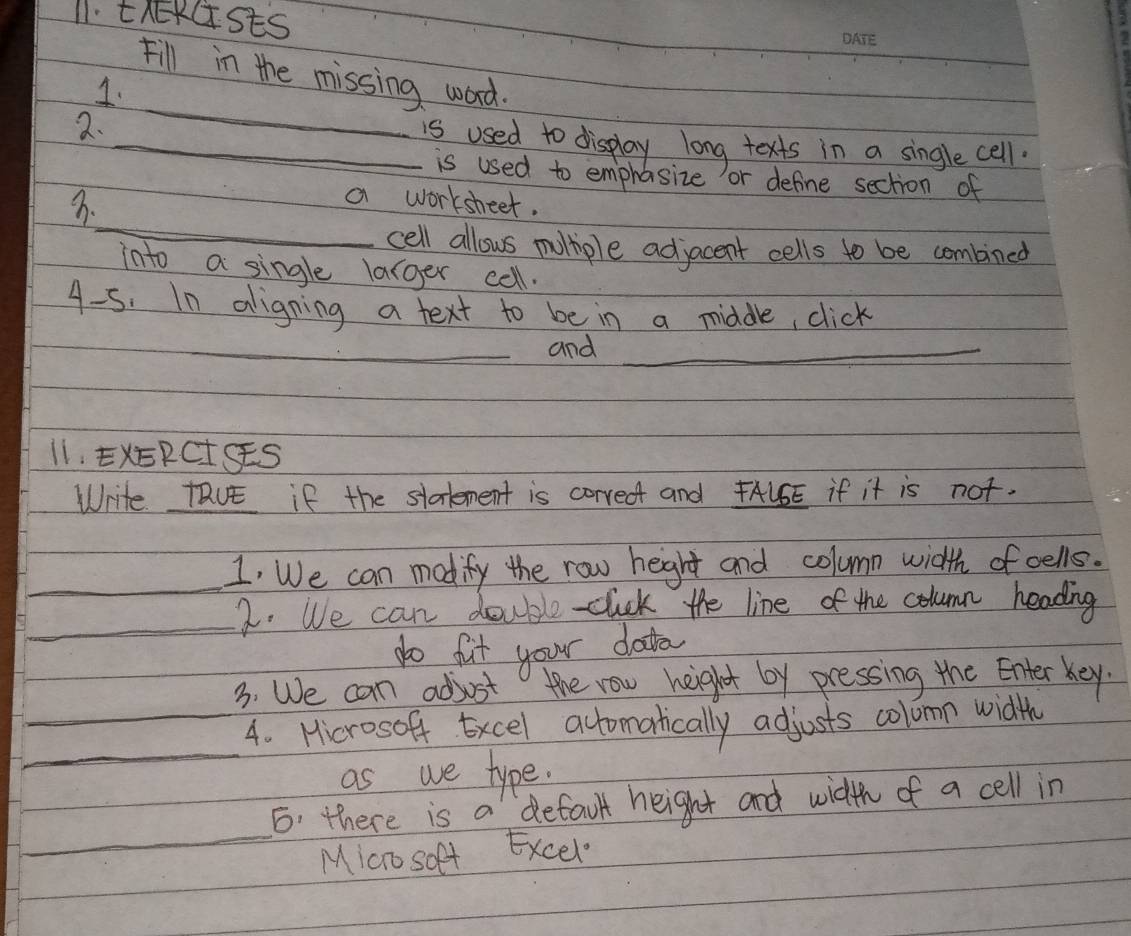 11. EXERCISES
DATE
Fill in the missing word.
1. ____________ is used to display long texts in a single cell.
2. ____________ is used to emphasize or define section of
a worksheet.
3. ____________ cell allows multiple adjacent cells to be combined
into a single larger cell.
4-5. In aligning a text to be in a middle, click
____________ and ____________
11. EXERCISES
Write TRUE if the statement is correct and FALSE if it is not.
________ 1. We can modify the row height and column width of cells.
________ 2. We can double-click the line of the column heading
to fit your data
________ 3. We can adjust the row height by pressing the Enter key.
________ 4. Microsoft Excel automatically adjusts column width
as we type.
________ 5. there is a default height and width of a cell in
Microsoft Excel.